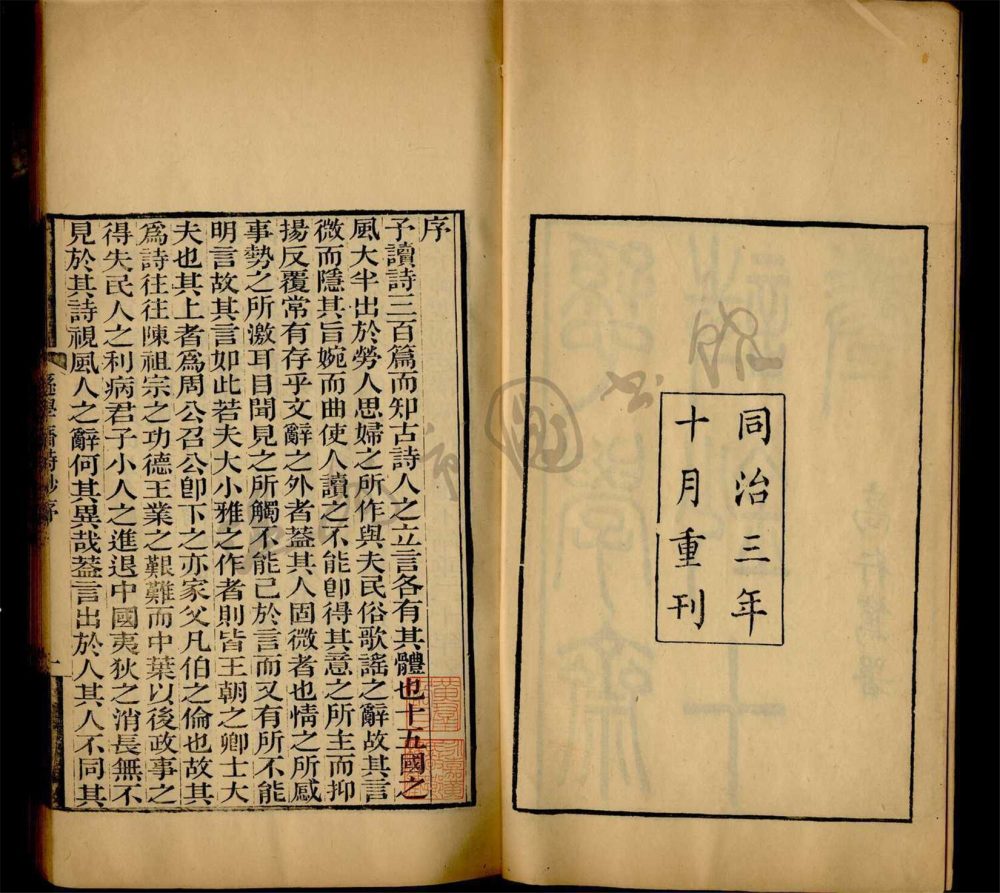 同治三年
十月重刊
序
予讀詩三百篇而知古詩人之立言各有其體也十五國之
風大半出於勞人思婦之所作與夫民俗歌謠之辭故其言
微而隱其旨婉而曲使人讀之不能卽得其意之所主而抑
揚反覆常有存乎文辭之外者蓋其人固微者也情之所感
事勢之所激耳目聞見之所觸不能已於言而又有所不能
明言故其言如此若夫大小雅之作者則皆王朝之卿士大
夫也其上者爲周公召公卽下之亦家父凡伯之倫也故其
爲詩往往陳祖宗之功德王業之艱難而中葉以後政事之
得失民人之利病君子小人之進退中國夷狄之消長無不
見於其詩視風人之辭何其異哉蓋言出於人其人不同其
遜學齋詩鈔序
一